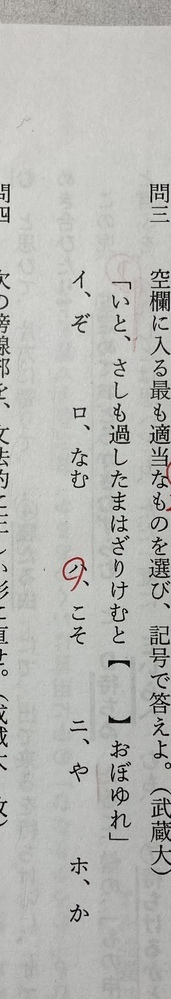 問三 空欄に入る最も適当なものを選び、記号で答えよ。(武蔵大)
「いと、さしも過したまはざりけむと【 】おぼゆれ」
イ、ぞ ロ、なむ ハ、こそ ニ、や ホ、か
問四 次の傍線部を、文法的に正しい形に直せ。(成城大 改)